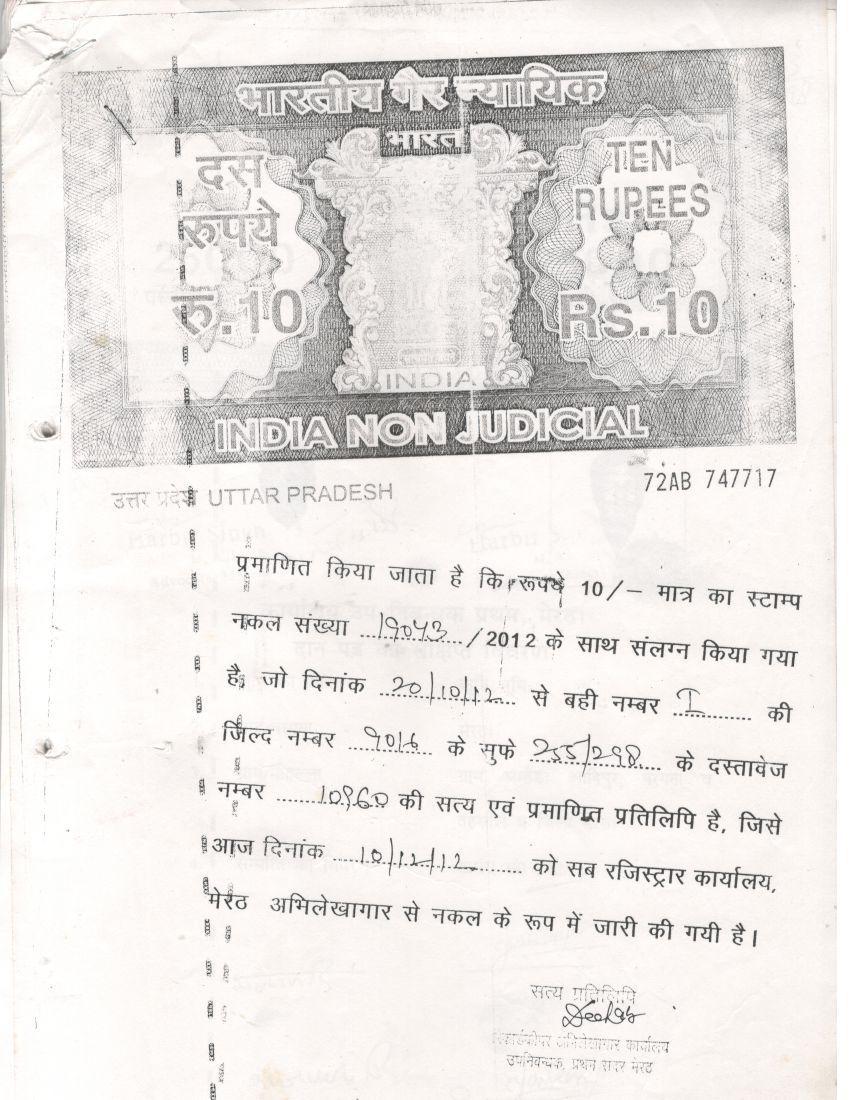 भारतीय गैर न्यायिक
भारत
दस
रुपये
रु.10
TEN
RUPEES
Rs.10
INDIA
INDIA NON JUDICIAL
उत्तर प्रदेश UTTAR PRADESH
72AB 747717
प्रमाणित किया जाता है कि रूपये 10/- मात्र का स्टाम्प
नकल संख्या 19043/2012 के साथ संलग्न किया गया
है, जो दिनांक 20/10/12 से बही नम्बर I की
जिल्द नम्बर के सुफे 255/298 के दस्तावेज
नम्बर 10960 की सत्य एवं प्रमाणित प्रतिलिपि है, जिसे
आज दिनांक 10/12/12 को सब रजिस्ट्रार कार्यालय,
मेरठ अभिलेखागार से नकल के रूप में जारी की गयी है।
सत्य प्रतिलिपि
अभिलेखागार कार्यालय
उपनिबन्धक, प्रथम सदर मेरठ